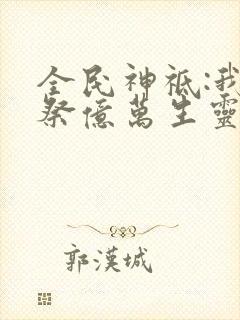 全民神祇:我
祭億萬生靈
郭漢城